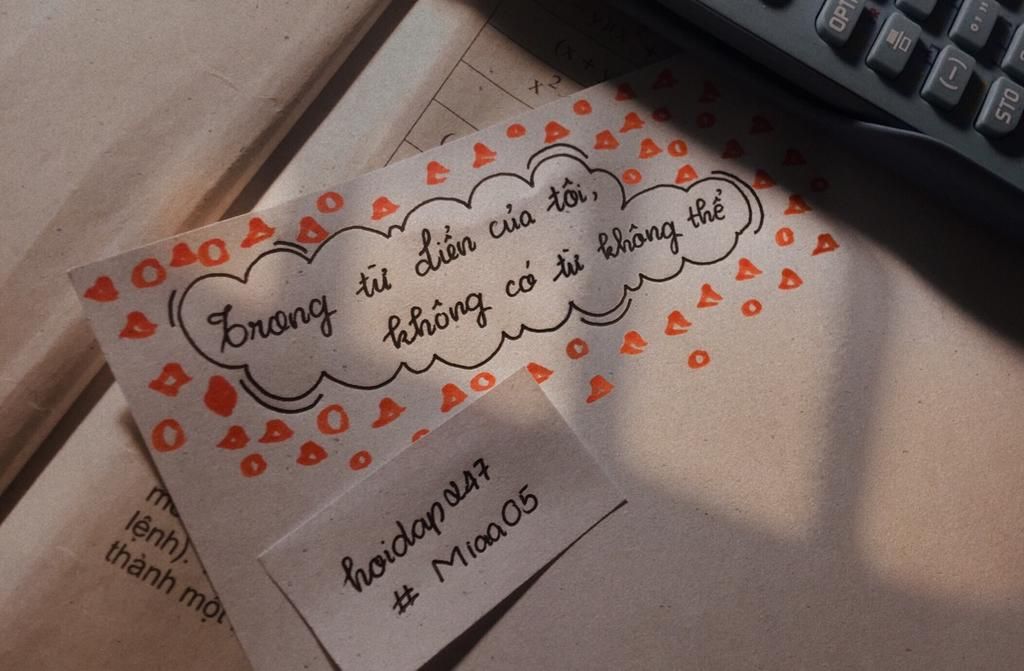 Trong từ điển của tôi,
không có từ không thể
hoidap247
# Miaa05
lệnh).
thành một
x 2
OPTN
(−)
STO